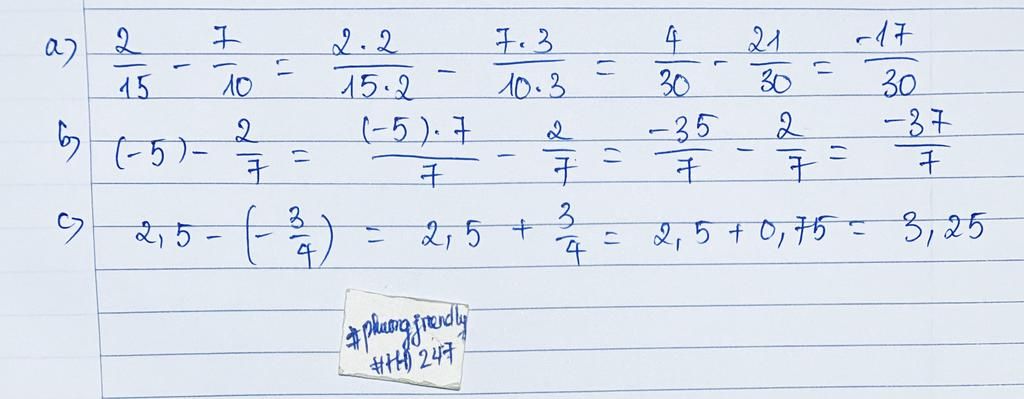 a) 2/15 - 7/10 = 2.2/15.2 - 7.3/10.3 = 4/30 - 21/30 = -17/30
b) (-5) - 2/7 = (-5).7/7 - 2/7 = -35/7 - 2/7 = -37/7
c) 2,5 - (-3/4) = 2,5 + 3/4 = 2,5 + 0,75 = 3,25
#phuongfriendly
#HĐ247